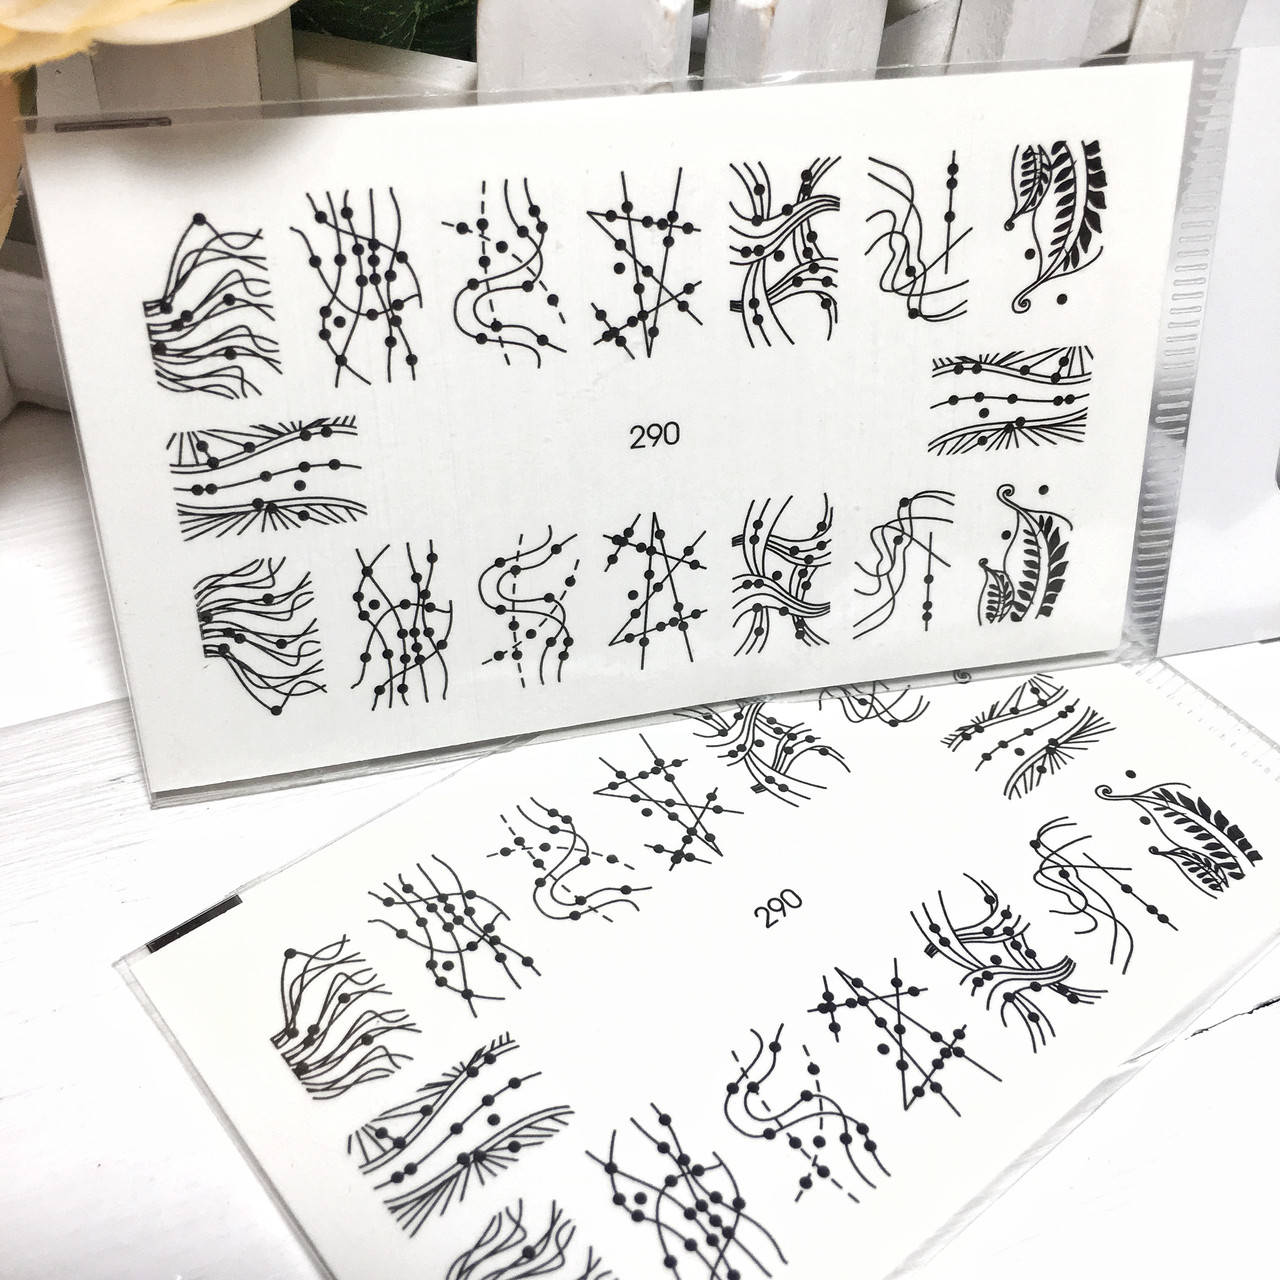 290
290